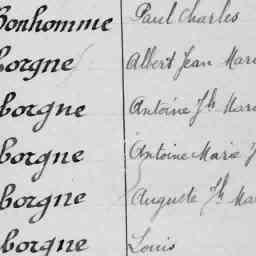 Bonhomme Paul Charles
borgne Albert Jean Mari
borgne Antoine Jh Mari
borgne Antoine Marie J
borgne Auguste Jh Ma
borgne Louis